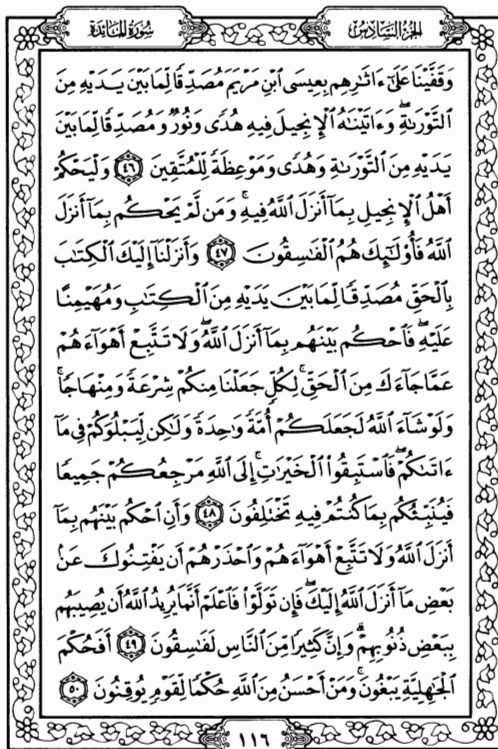 الجزء السادس
سورة المائدة
وَقَفَّيْنَا عَلَىٰٓ ءَاثَٰرِهِم بِعِيسَى ٱبْنِ مَرْيَمَ مُصَدِّقًا لِّمَا بَيْنَ يَدَيْهِ مِنَ
ٱلتَّوْرَىٰةِۖ وَءَاتَيْنَٰهُ ٱلْإِنجِيلَ فِيهِ هُدًى وَنُورٌ وَمُصَدِّقًا لِّمَا بَيْنَ
يَدَيْهِ مِنَ ٱلتَّوْرَىٰةِ وَهُدًى وَمَوْعِظَةً لِّلْمُتَّقِينَ ٤٦ وَلْيَحْكُمْ
أَهْلُ ٱلْإِنجِيلِ بِمَآ أَنزَلَ ٱللَّهُ فِيهِۚ وَمَن لَّمْ يَحْكُم بِمَآ أَنزَلَ
ٱللَّهُ فَأُو۟لَٰٓئِكَ هُمُ ٱلْفَٰسِقُونَ ٤٧ وَأَنزَلْنَآ إِلَيْكَ ٱلْكِتَٰبَ
بِٱلْحَقِّ مُصَدِّقًا لِّمَا بَيْنَ يَدَيْهِ مِنَ ٱلْكِتَٰبِ وَمُهَيْمِنًا
عَلَيْهِۖ فَٱحْكُم بَيْنَهُم بِمَآ أَنزَلَ ٱللَّهُۖ وَلَا تَتَّبِعْ أَهْوَآءَهُمْ
عَمَّا جَآءَكَ مِنَ ٱلْحَقِّۚ لِكُلٍّ جَعَلْنَا مِنكُمْ شِرْعَةً وَمِنْهَاجًاۚ
وَلَوْ شَآءَ ٱللَّهُ لَجَعَلَكُمْ أُمَّةً وَٰحِدَةً وَلَٰكِن لِّيَبْلُوَكُمْ فِى مَآ
ءَاتَىٰكُمْۖ فَٱسْتَبِقُوا۟ ٱلْخَيْرَٰتِۚ إِلَى ٱللَّهِ مَرْجِعُكُمْ جَمِيعًا
فَيُنَبِّئُكُم بِمَا كُنتُمْ فِيهِ تَخْتَلِفُونَ ٤٨ وَأَنِ ٱحْكُم بَيْنَهُم بِمَآ
أَنزَلَ ٱللَّهُ وَلَا تَتَّبِعْ أَهْوَآءَهُمْ وَٱحْذَرْهُمْ أَن يَفْتِنُوكَ عَنۢ
بَعْضِ مَآ أَنزَلَ ٱللَّهُ إِلَيْكَۖ فَإِن تَوَلَّوْا۟ فَٱعْلَمْ أَنَّمَا يُرِيدُ ٱللَّهُ أَن يُصِيبَهُم
بِبَعْضِ ذُنُوبِهِمْۗ وَإِنَّ كَثِيرًا مِّنَ ٱلنَّاسِ لَفَٰسِقُونَ ٤٩ أَفَحُكْمَ
ٱلْجَٰهِلِيَّةِ يَبْغُونَۚ وَمَنْ أَحْسَنُ مِنَ ٱللَّهِ حُكْمًا لِّقَوْمٍ يُوقِنُونَ ٥٠
١١٦